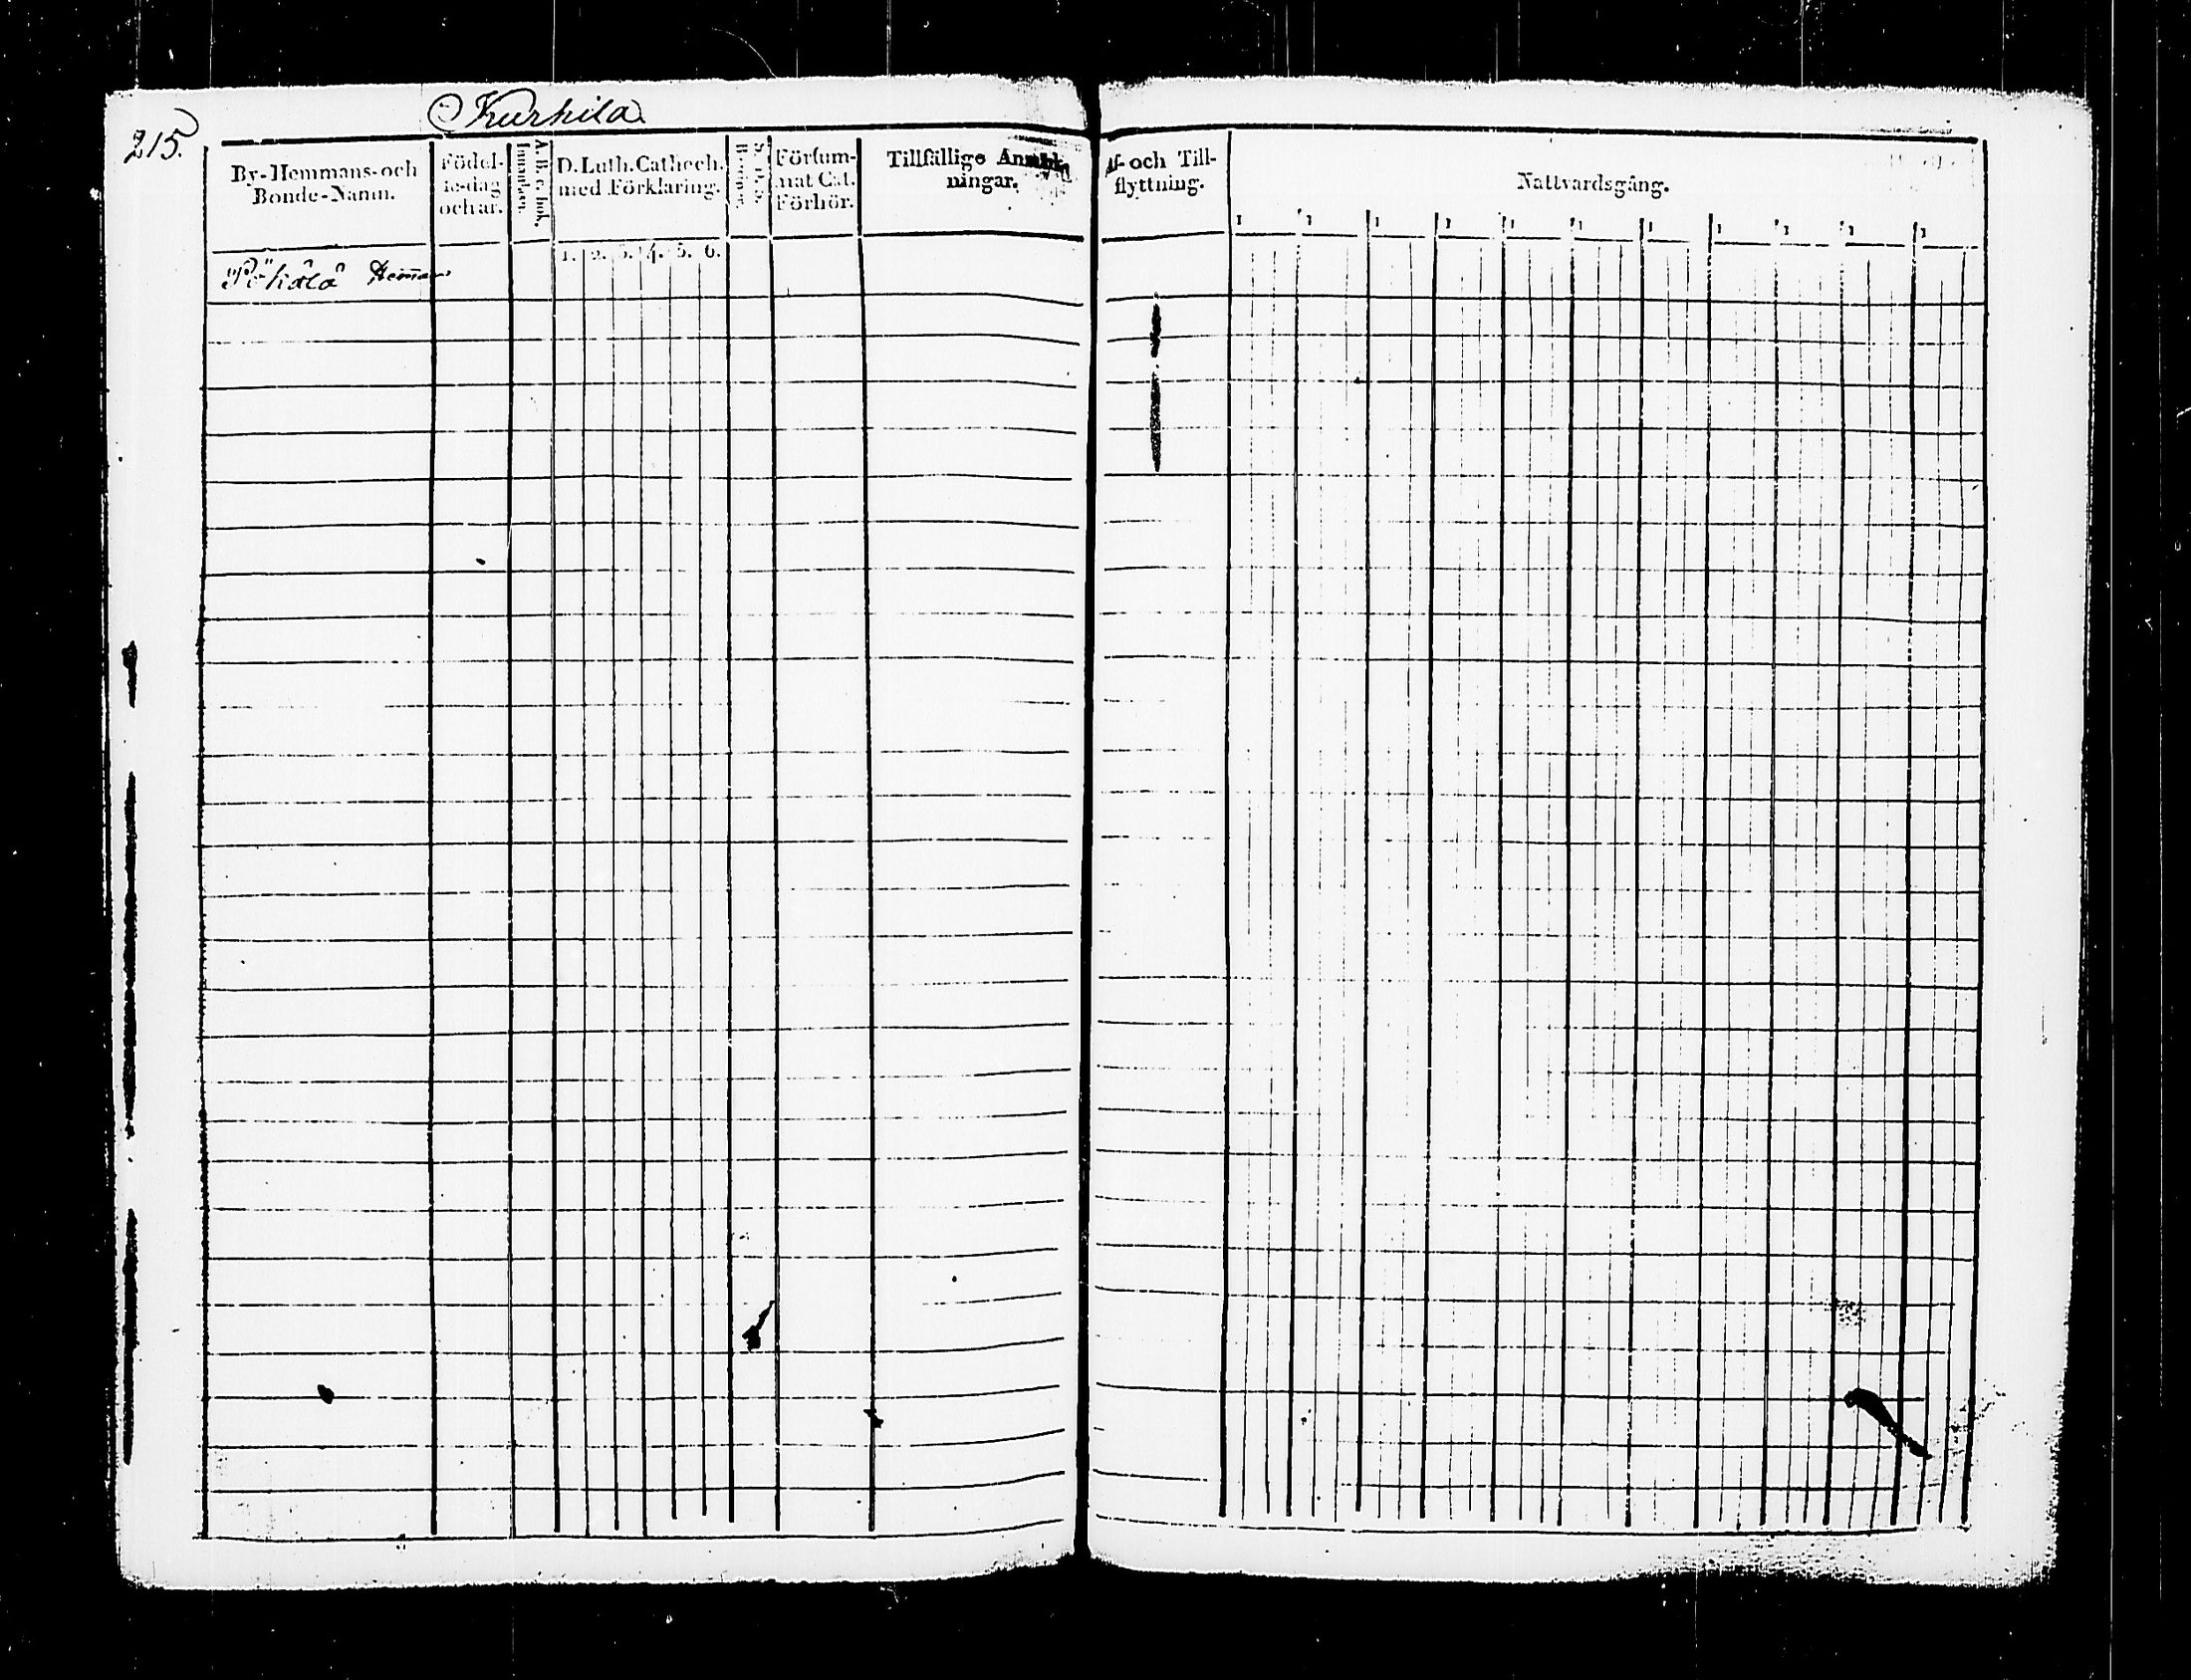 215.
Kurhila
By-Hemmans-och
Bonde-Namn.
Födel-
se-dag
och år.
A. B. c. bok.
Innanläsn.
D. Luth. Cathech.
med Förklaring.
1. 2. 3. 4. 5. 6.
Försum-
mat Cat.
Förhör.
Tillfällige Anmärk-
ningar.
Af- och Till-
flyttning.
Nattvardsgång.
1 1 1 1 1 1 1 1 1 1 1
Heman